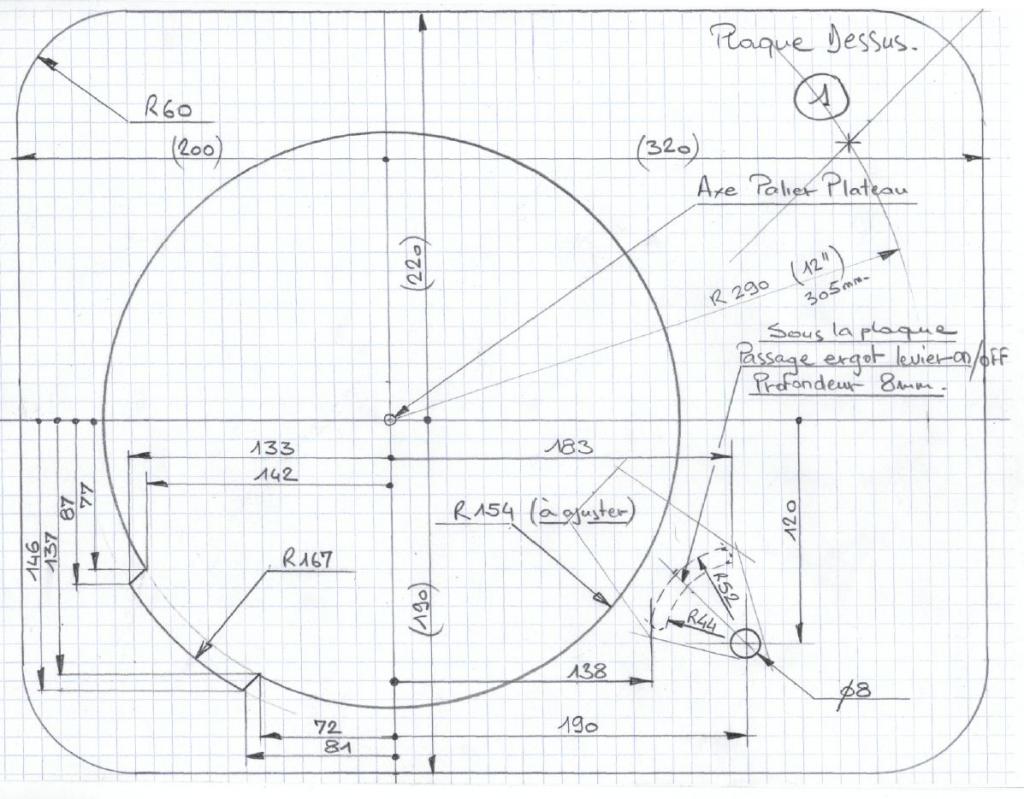 Plaque Dessus.
1
R60
(200)
(320)
Axe Palier Plateau
(220)
R 290 (12")
305mm.
Sous la plaque
Passage ergot levier on/off
Profondeur 8mm.
133
183
142
87
77
146
137
R154 (à ajuster)
120
R167
R52
R44
(190)
138
ø8
72
190
81